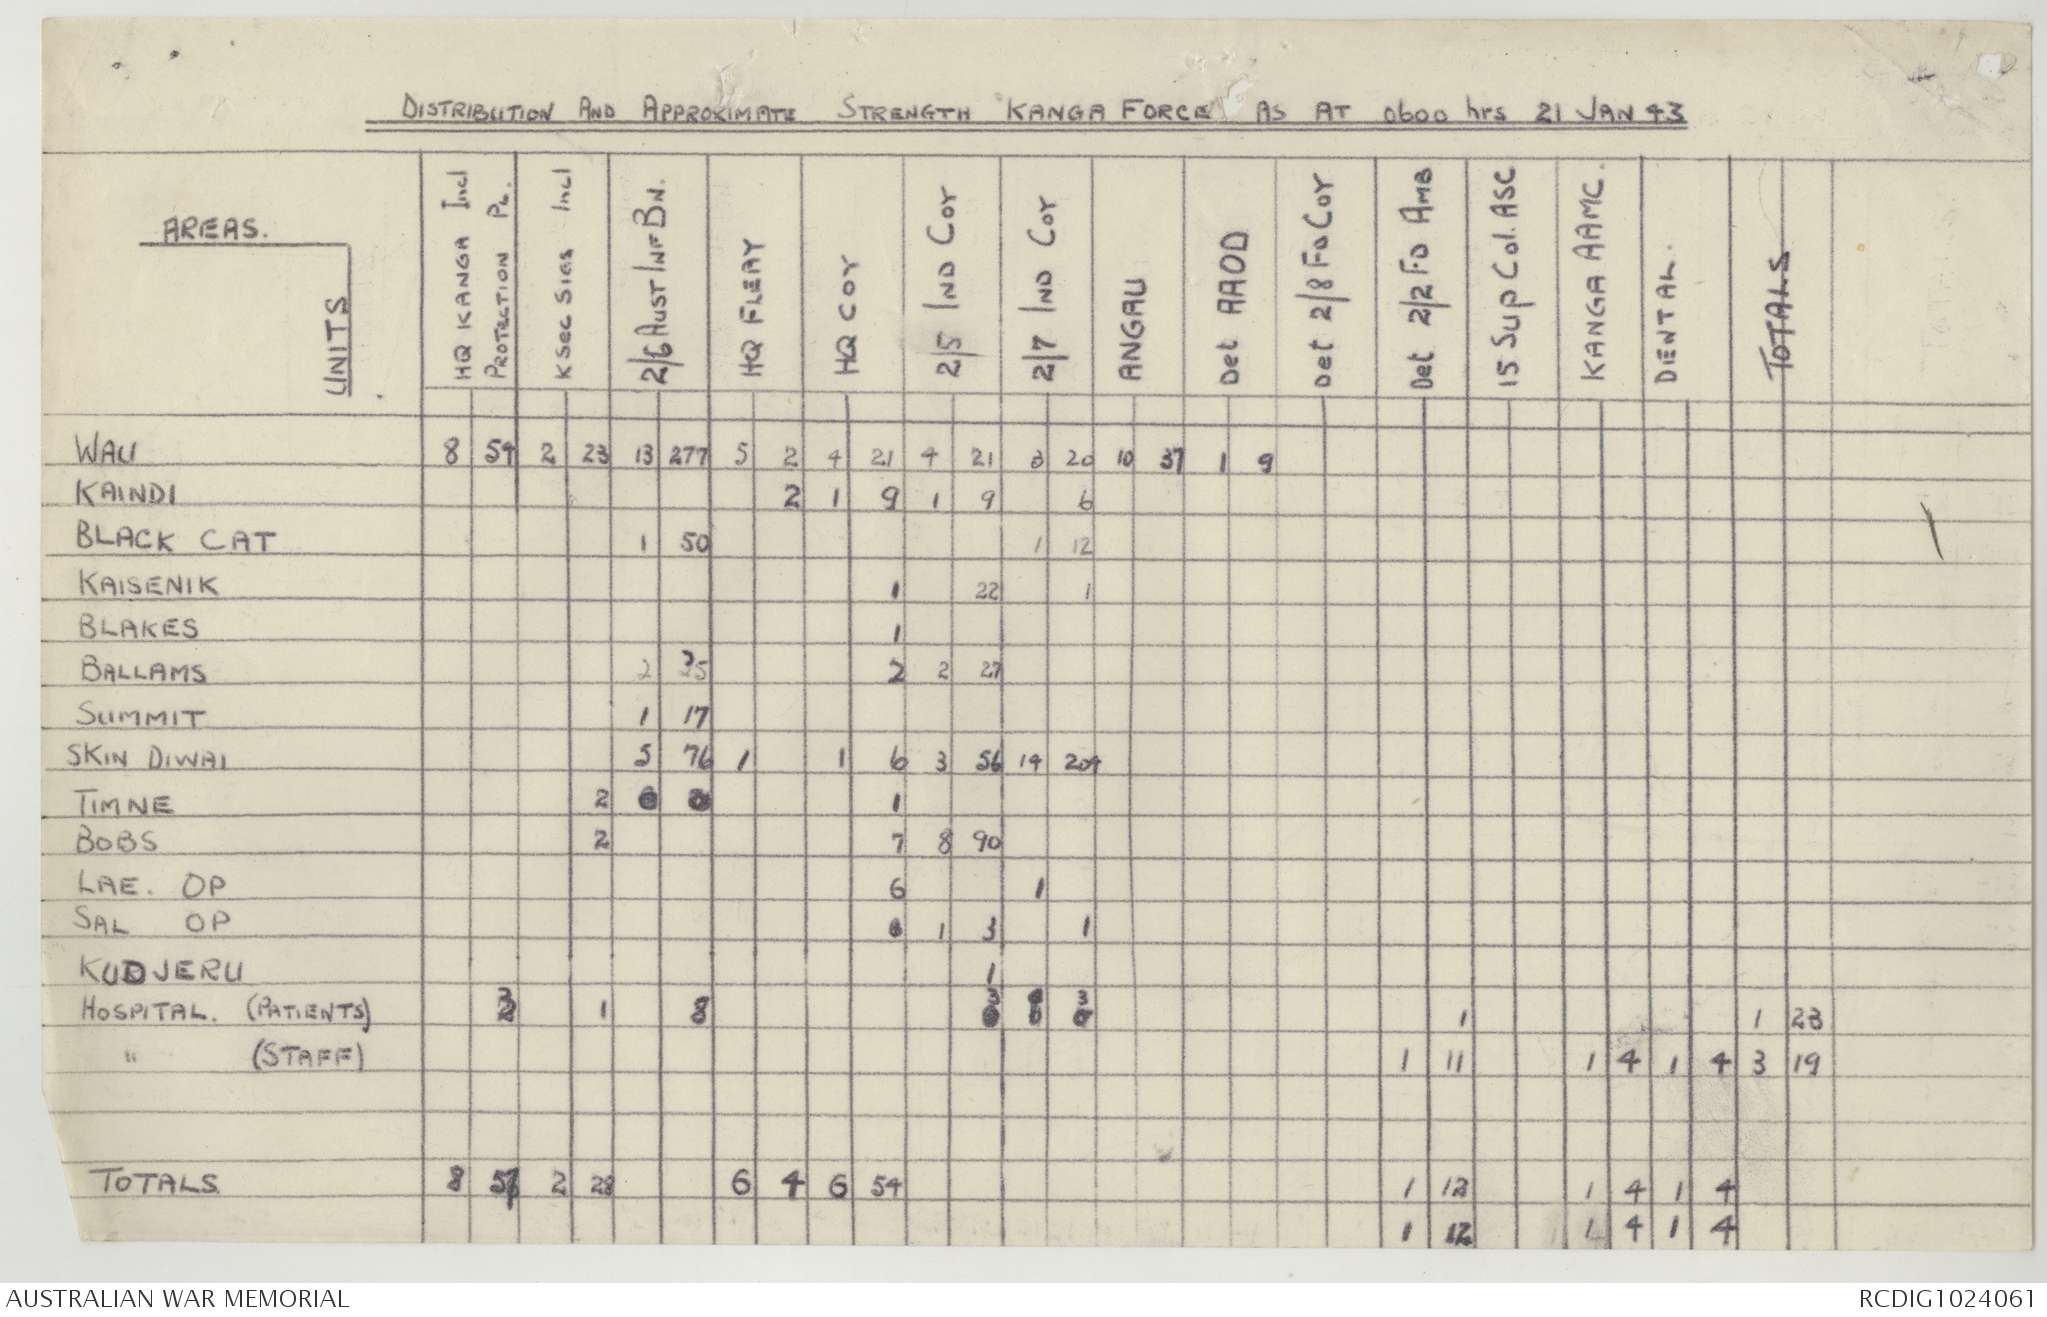 DISTRIBUTION AND APPROXIMATE STRENGTH "KANGA FORCE" AS AT 0600 hrs 21 JAN 43
AREAS.
UNITS
HQ KANGA Incl PROTECTION PL.
K SEC SIGS Incl
2/6 AUST INF BN.
HQ FLEAY
HQ COY
2/5 IND COY
2/7 IND COY
ANGAU
Det AAOD
Det 2/8 FD COY
Det 2/2 FD AMB
15 SUP COL. ASC
KANGA AAMC.
DENTAL.
TOTALS
WAU 8 54 2 23 13 277 5 2 4 21 4 21 3 20 10 37 1 9
KAINDI 2 1 9 1 9 6
BLACK CAT 1 50 1 12
KAISENIK 1 22 1
BLAKES 1
BALLAMS 2 2 2 27
SUMMIT 1 17
SKIN DIWAI 5 76 1 1 6 3 56 14 204
TIMNE 2 1
BOBS 2 7 8 90
LAE. OP 6 1
SAL OP 1 3 1
KUDJERU 1
HOSPITAL. (PATIENTS) 1 8 1 1 23
" (STAFF) 1 11 1 4 1 4 3 19
TOTALS 8 2 28 6 4 6 54 1 12 1 4 1 4
1 12 1 4 1 4
AUSTRALIAN WAR MEMORIAL
RCDIG1024061